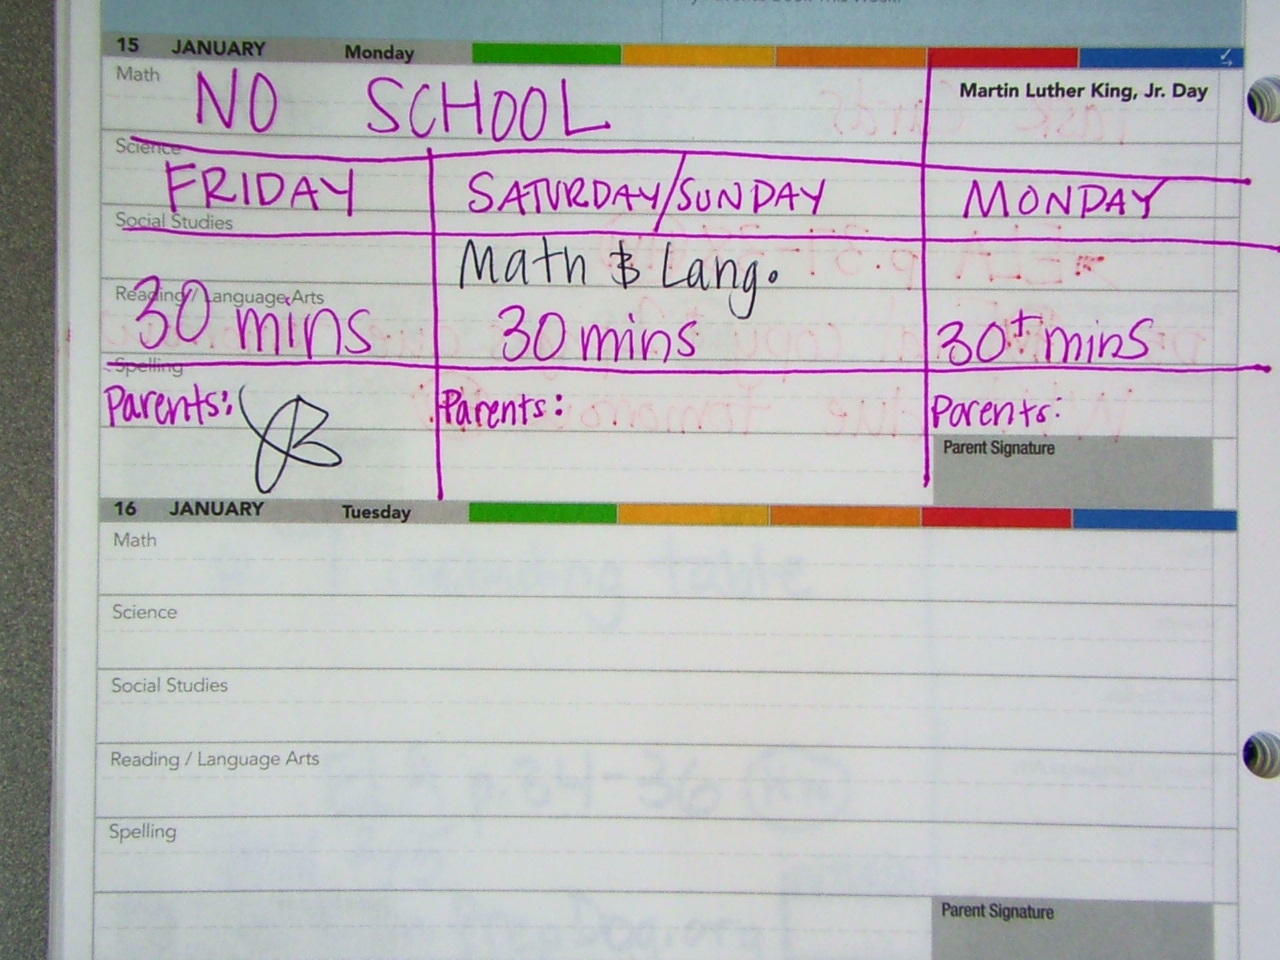 15 JANUARY Monday
Math
NO SCHOOL
Martin Luther King, Jr. Day
Science
FRIDAY SATURDAY/SUNDAY MONDAY
Social Studies
Math & Lang.
Reading / Language Arts
30 mins 30 mins 30+ mins
Spelling
Parents: Parents: Parents:
Parent Signature
16 JANUARY Tuesday
Math
Science
Social Studies
Reading / Language Arts
Spelling
Parent Signature